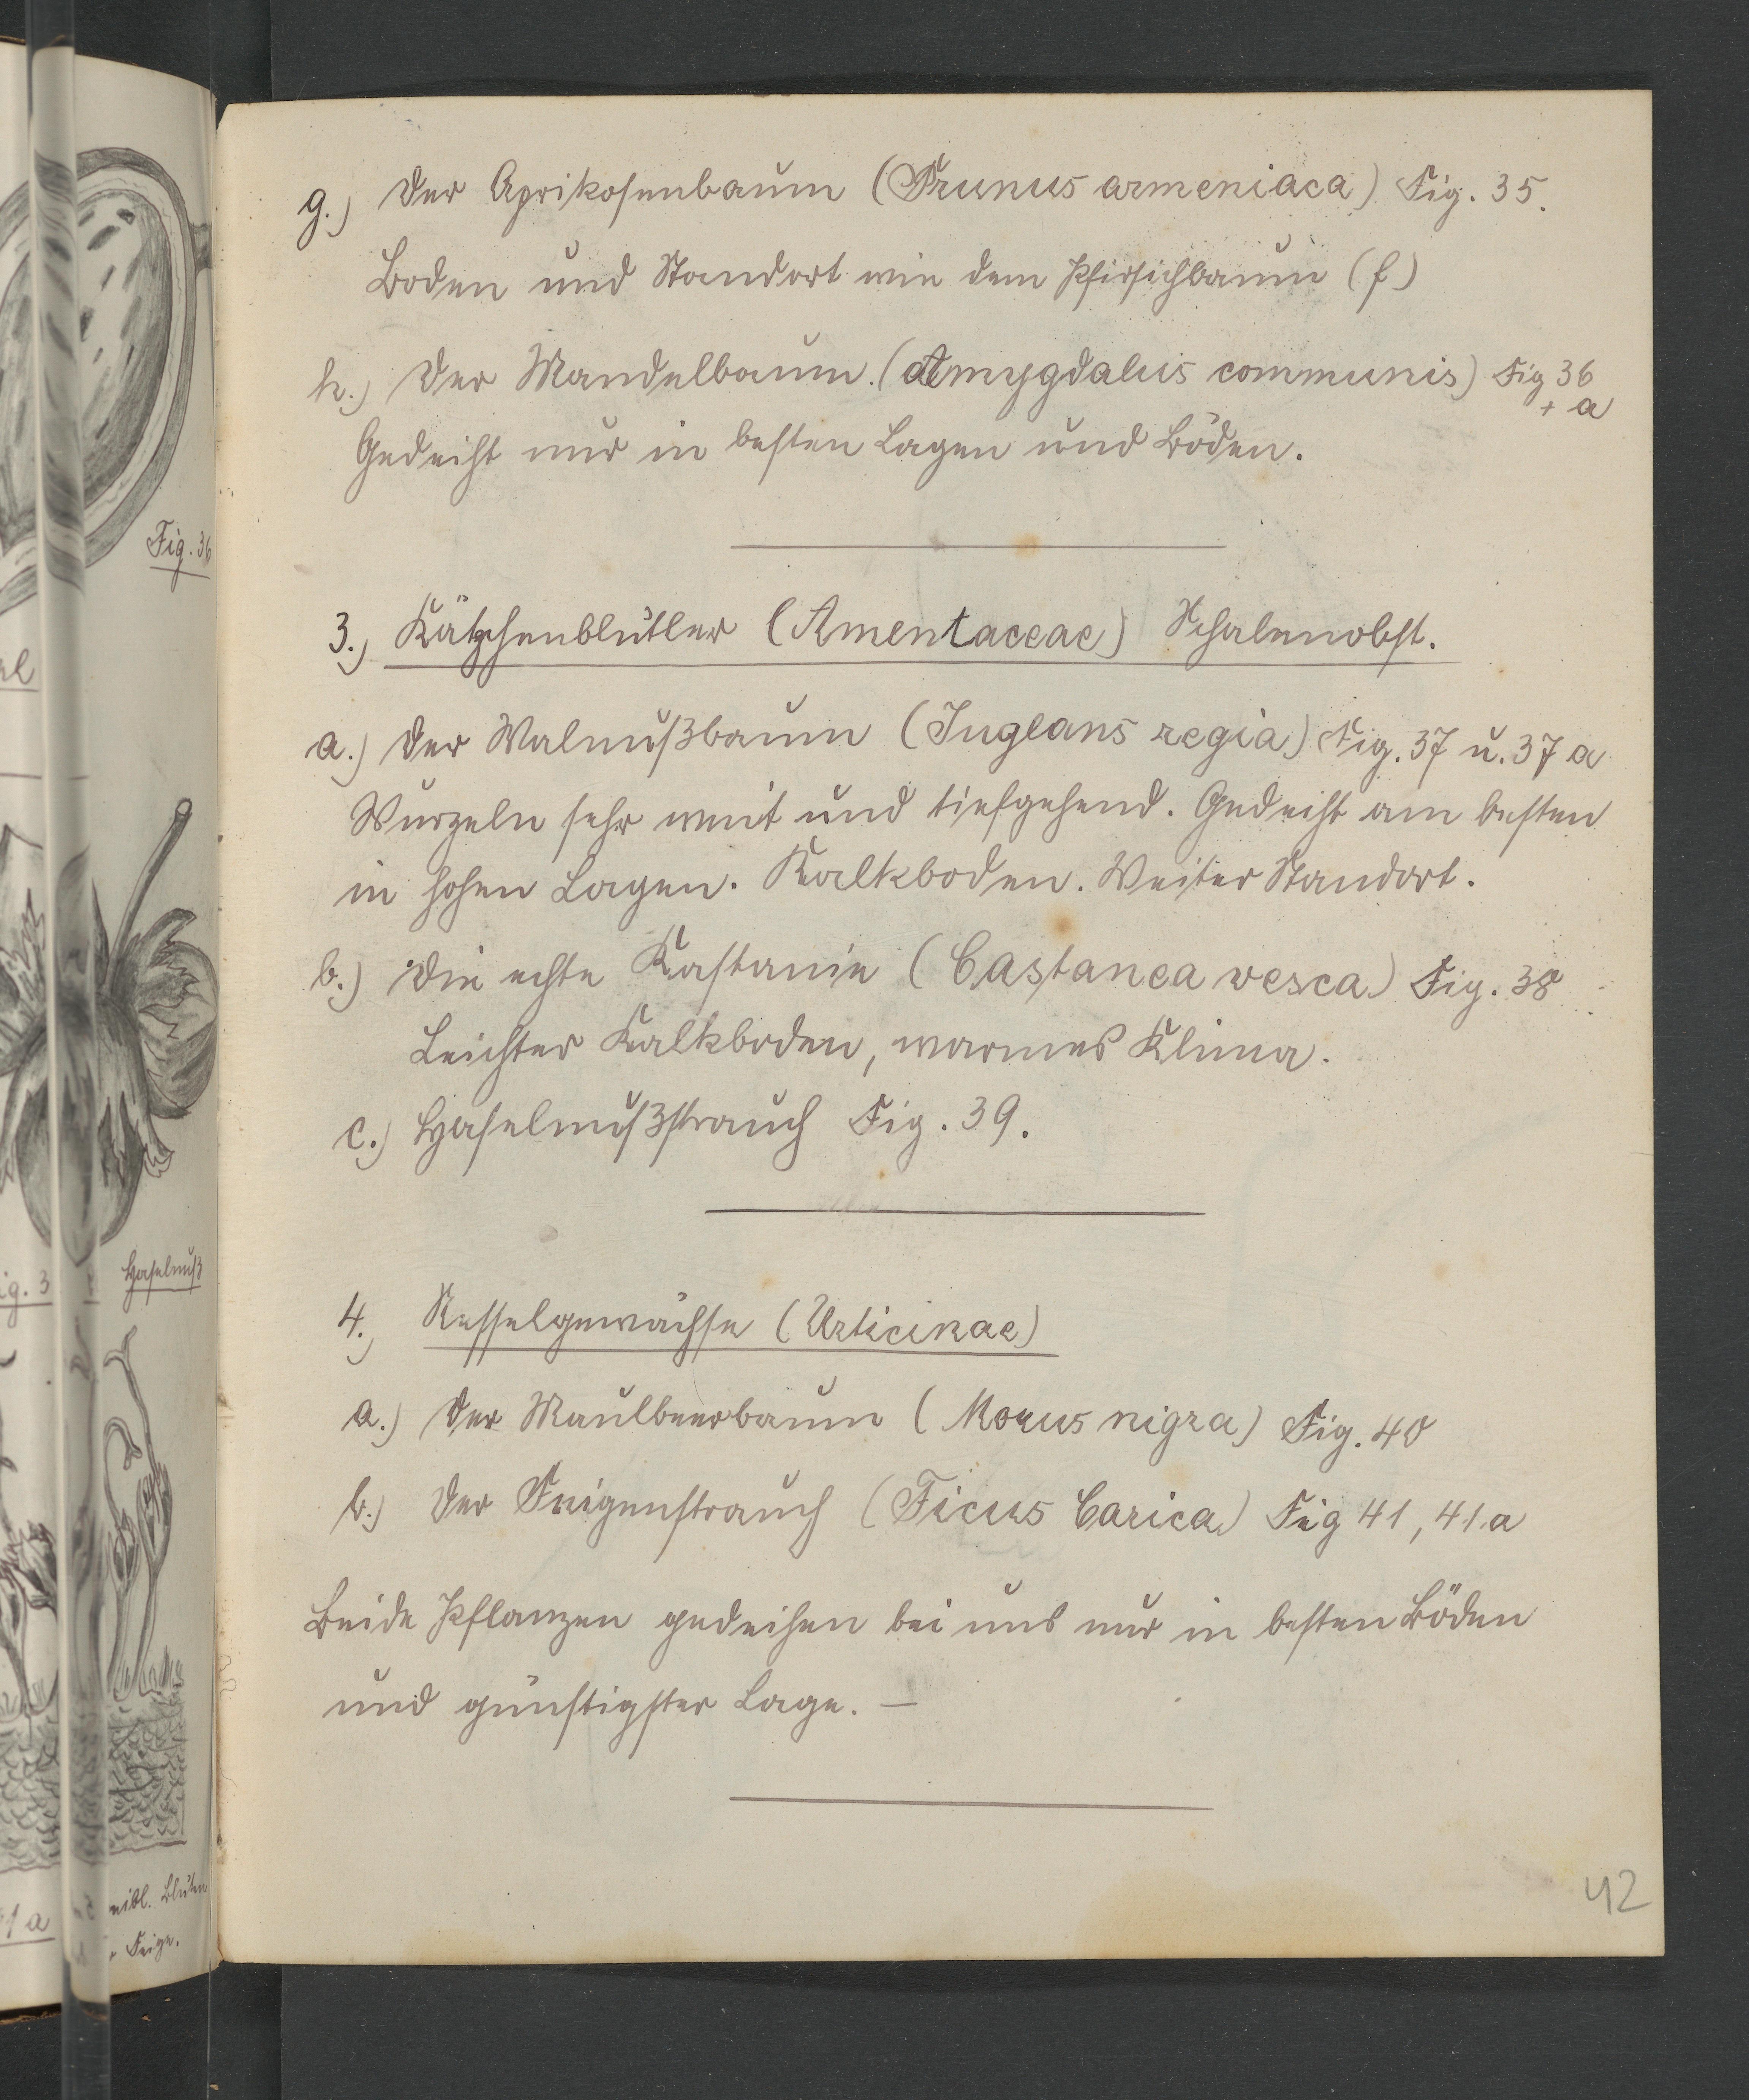 g.) Der Aprikosenbaum (Prunus armeniaca) Fig. 35.
Boden und Standort wie dem Pfirsichbaum (f)
h.) Der Mandelbaum. (Amygdalus communis) Fig 36
+ a
Gedeiht nur in besten Lagen und Böden.
3.) Kätzchenblütler (Amentaceae) Schalenobst.
a.) Der Walnußbaum (Juglans regia) Fig. 37 u. 37 a
Wurzeln sehr weit und tiefgehend. Gedeiht am besten
in hohen Lagen. Kalkboden. Weiter Standort.
b.) Die echte Kastanie (Castanea vesca) Fig. 38
Leichter Kalkboden, warmes Klima.
c.) Haselnußstrauch Fig. 39.
4.) Nesselgewächse (Urticinae)
a.) Der Maulbeerbaum (Morus nigra) Fig. 40
b.) Der Feigenstrauch (Ficus Carica) Fig 41, 41.a
Beide Pflanzen gedeihen bei uns nur in besten Böden
und günstigster Lage. —
42
Fig. 36
Haselnuß
ig. 3
weibl. Blüten
Feige.
1 a